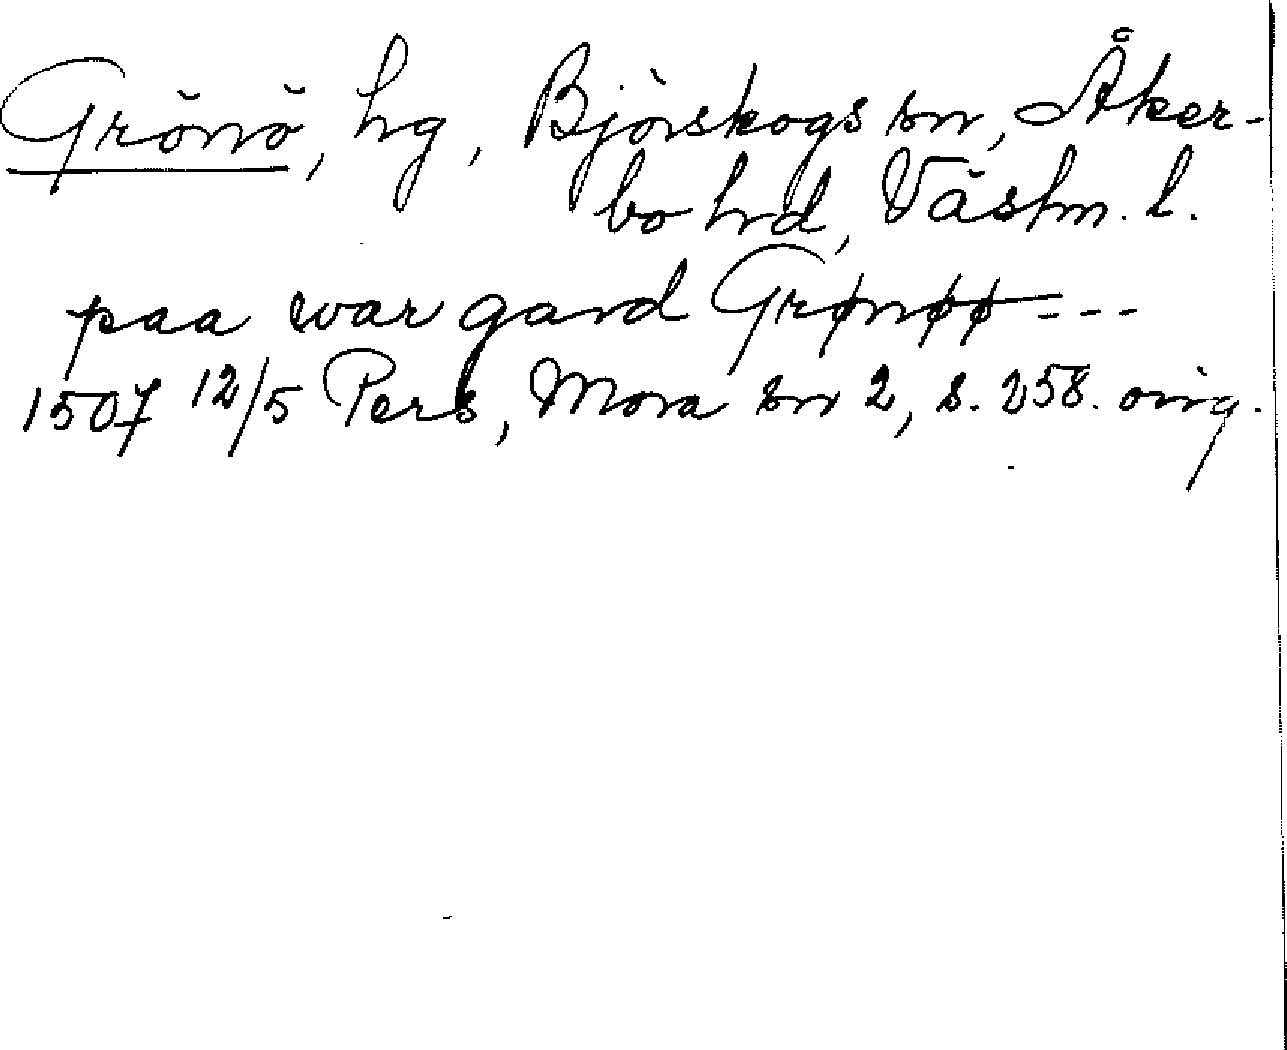 Grönö, hg, Björskogs sn, Åker-
bo hd, Västm. l.
paa war gard Grønøø---
1507 12/5 Pers, Mora sn 2, s. 258. orig.